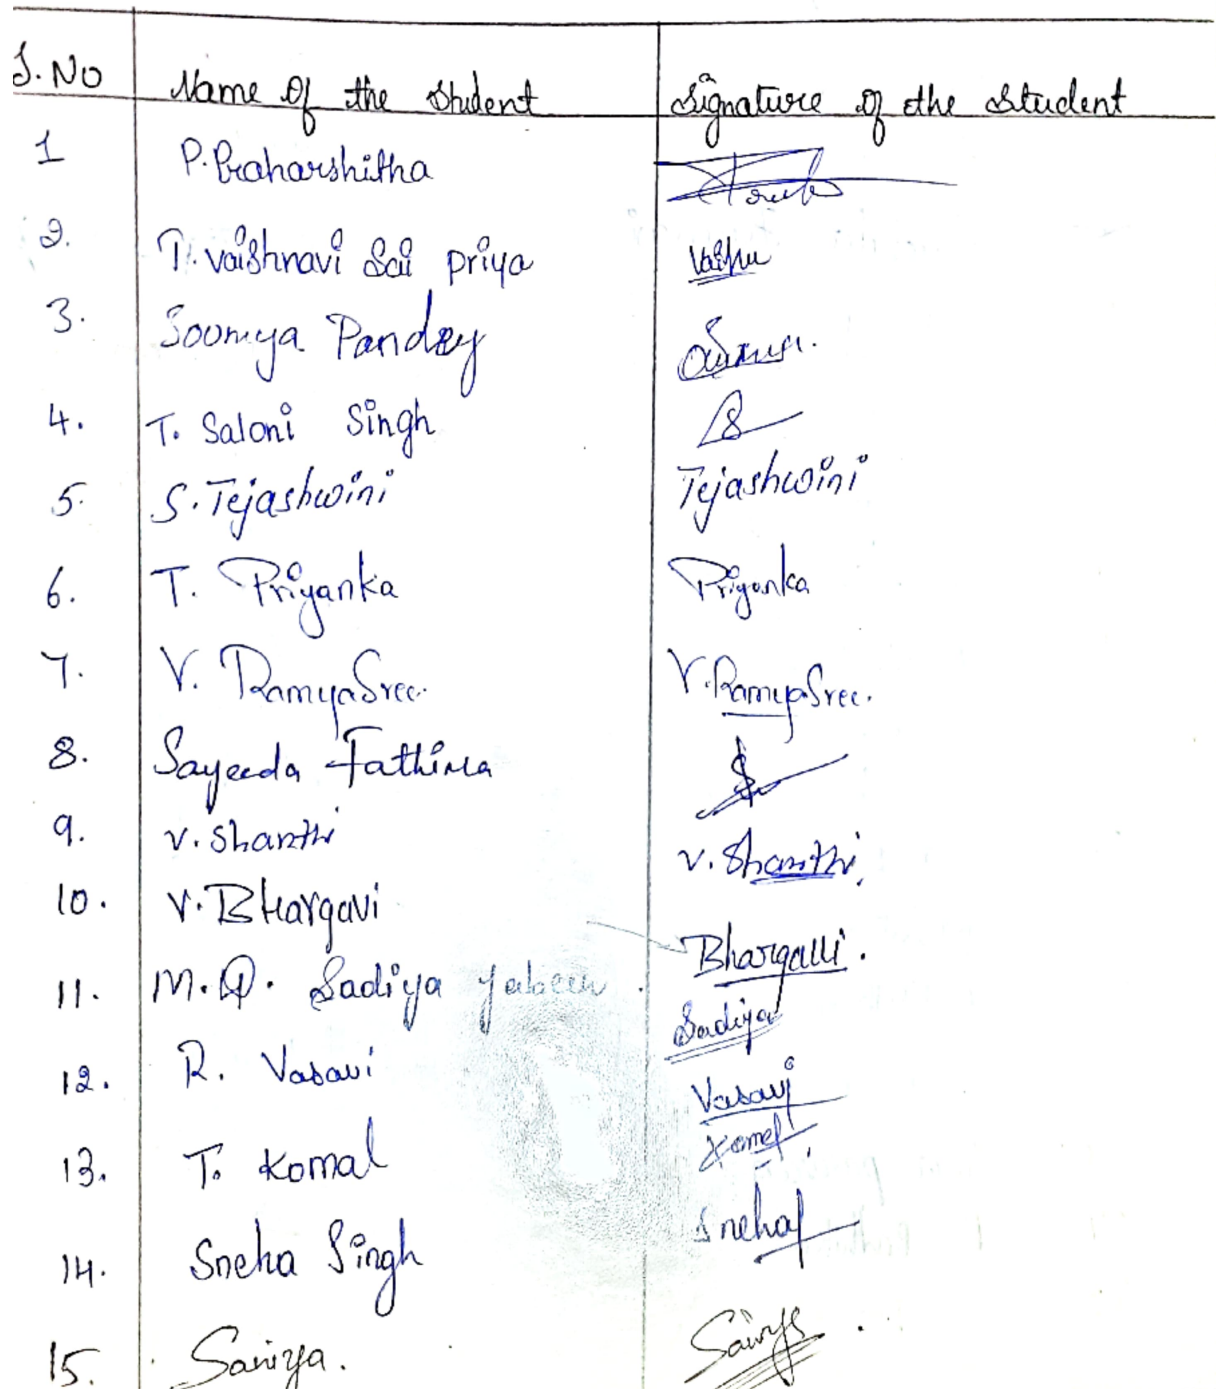 S.No Name of the Student Signature of the Student
1 P. Praharshitha
2. T. Vaishnavi Sai Priya Vaishu
3. Soomya Pandey
4. T. Saloni Singh S
5. S. Tejashwini Tejashwini
6. T. Priyanka Priyanka
7. V. RamyaSree. V. RamyaSree.
8. Sayeeda Fathima
9. V. Shanthi V. Shanthi
10. V. BHargavi Bhargavi.
11. M.D. Sadiya Jabeen. Sadiya
12. R. Vasavi Vasavi
13. T. Komal Komal
14. Sneha Singh Sneha
15. Saniya.